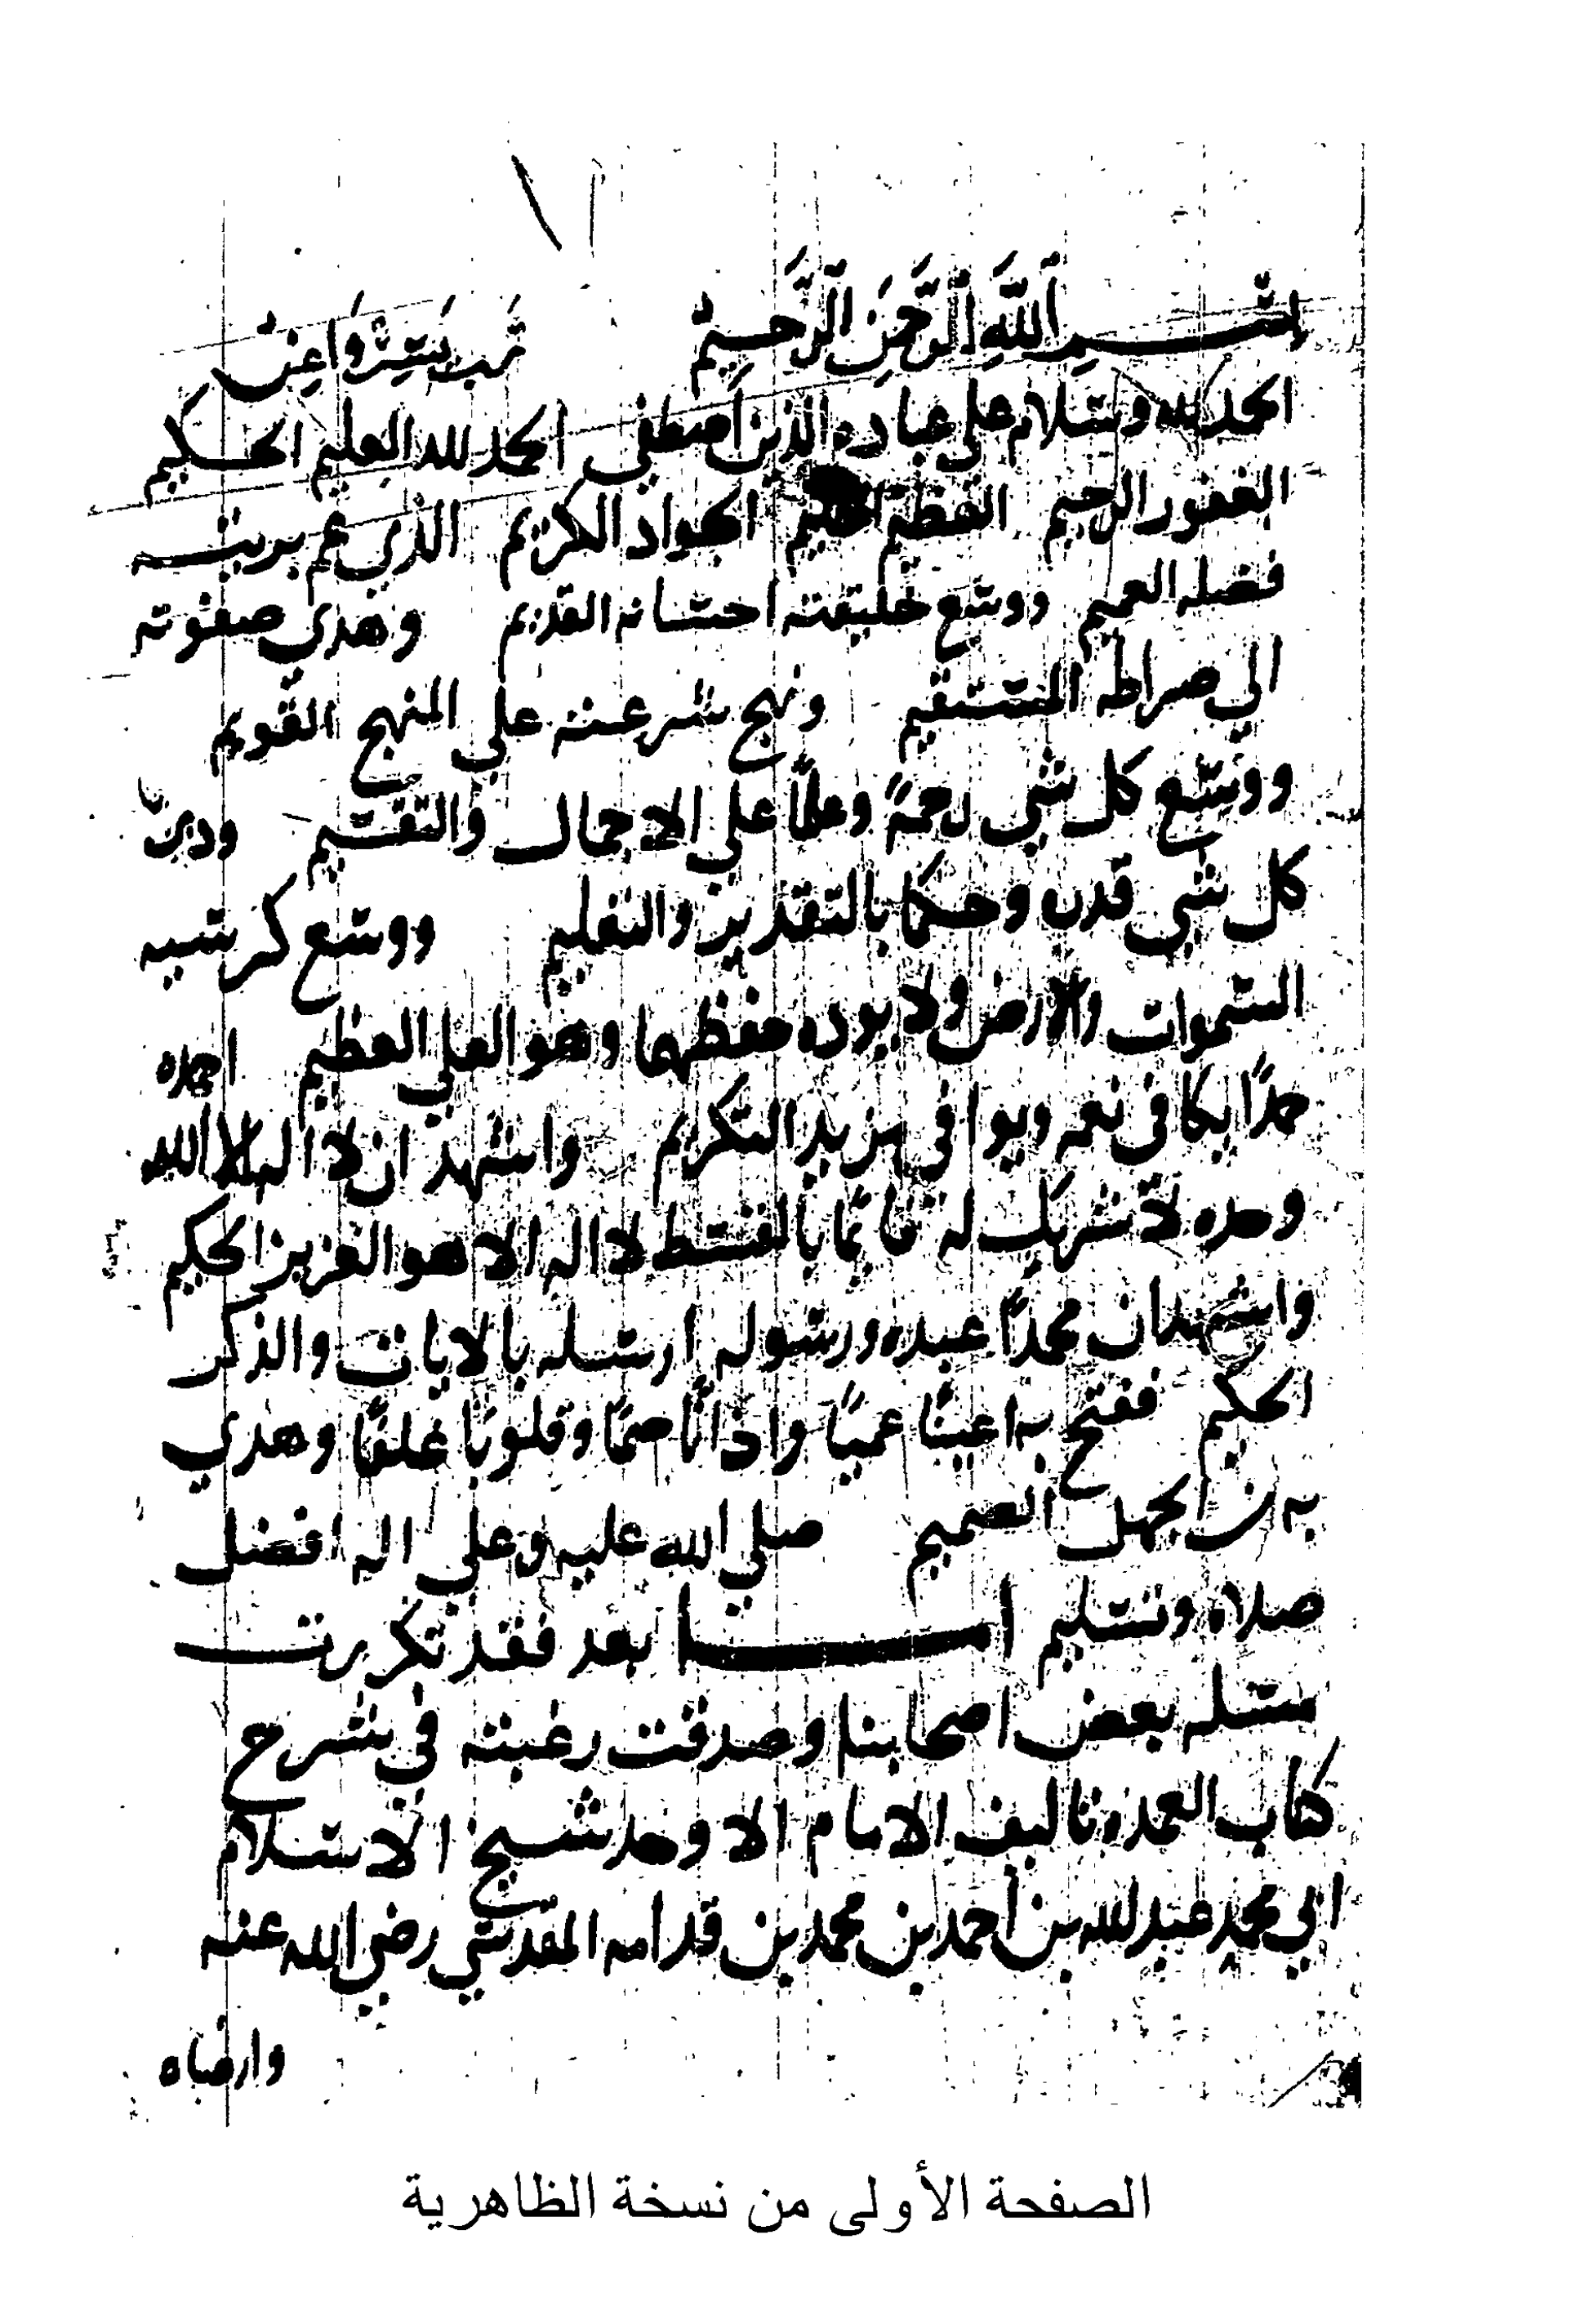 بسم اللَّهِ الرَّحْمَنِ الرَّحِيمِ رب يَسِّر وَاعِن
الحمد لله وسلام على عباده الذين اصطفى الحمد لله العليم الحكيم
الغفور الرحيم العظيم الحليم الجواد الكريم الذي عم بريته
فضله العميم ووسع خليقته احسانه القديم وهدي صفوته
الي صراطه المستقيم ونهج شرعته علي المنهج القويم
ووسع كل شي رحمةً وعلمًا علي الاجمال والتقسيم ودبر
كل شي قدرا وحكما بالتقدير والتعليم ووسع كرسيه
السموات والارض ولا يوده حفظهما وهو العلي العظيم احمده
حمدًا يكافي نعمه ويوافي مزيد التكريم واشهد ان لا اله الا الله
وحده لا شريك له قائمًا بالقسط لا اله الا هو العزيز الحكيم
واشهد ان محمدًا عبده ورسوله ارسله بالايات والذكر
الحكيم ففتح به اعينًا عميًا واذانًا صمًا وقلوبًا غلفًا وهدي
به من الجهل الصميم صلي الله عليه وعلي اله افضل
صلاه وتسليم اما بعد فقد تكررت
مسله بعض اصحابنا وصدقت رغبته في شرح
كتاب العمده تاليف الامام الاوحد شيخ الاسلام
ابي محمد عبد لله بن أحمد بن محمد بن قدامه المقدسي رضي الله عنه
وارضاه
الصفحة الأولى من نسخة الظاهرية